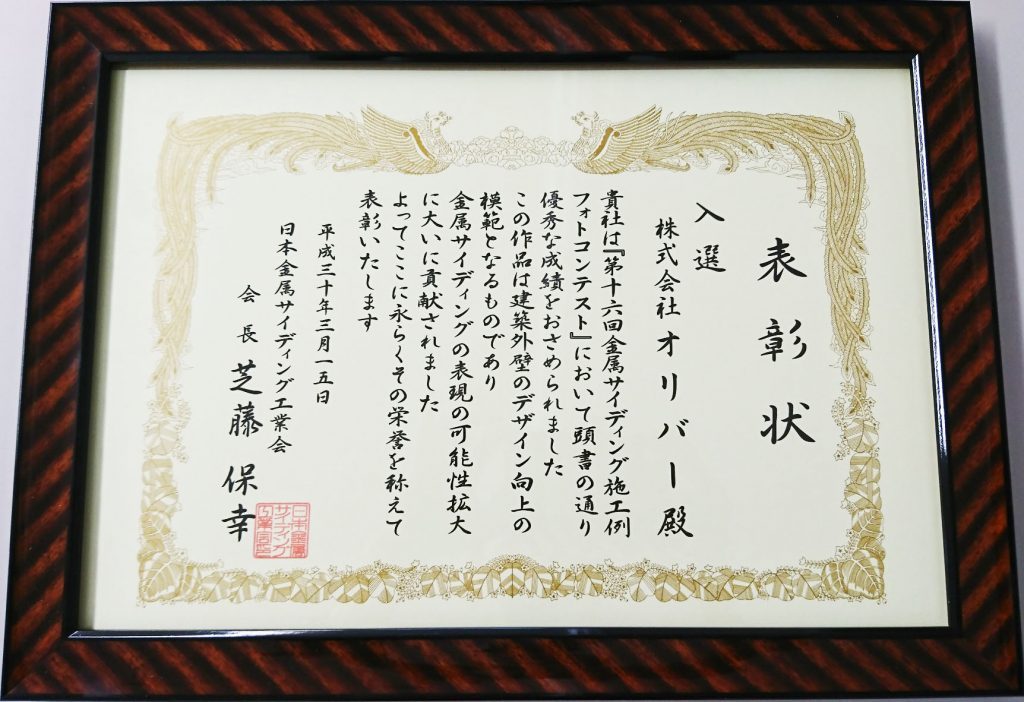 表彰状
入選
株式会社オリバー殿
貴社は『第十六回金属サイディング施工例
フォトコンテスト』において頭書の通り
優秀な成績をおさめられました
この作品は建築外壁のデザイン向上の
模範となるものであり
金属サイディングの表現の可能性拡大
に大いに貢献されました
よってここに永らくその栄誉を称えて
表彰いたします
平成三十年三月一五日
日本金属サイディング工業会
会長 芝藤保幸
日本金属
サイディング